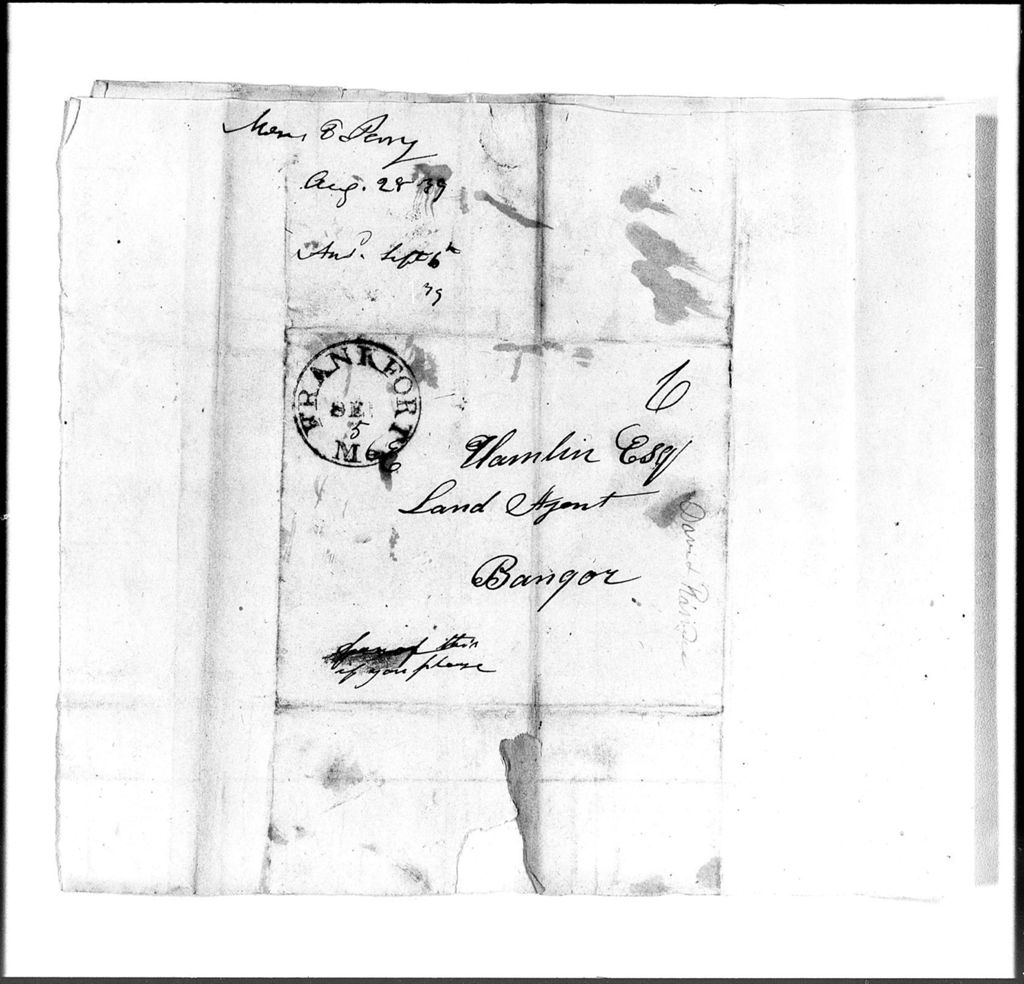 Perry
Aug. 28 39
Ansd. Sept 6th
39
FRANKFORT
SEP
5
Me
6
E Hamlin Esq
Land Agent
Bangor
this
if you please
David